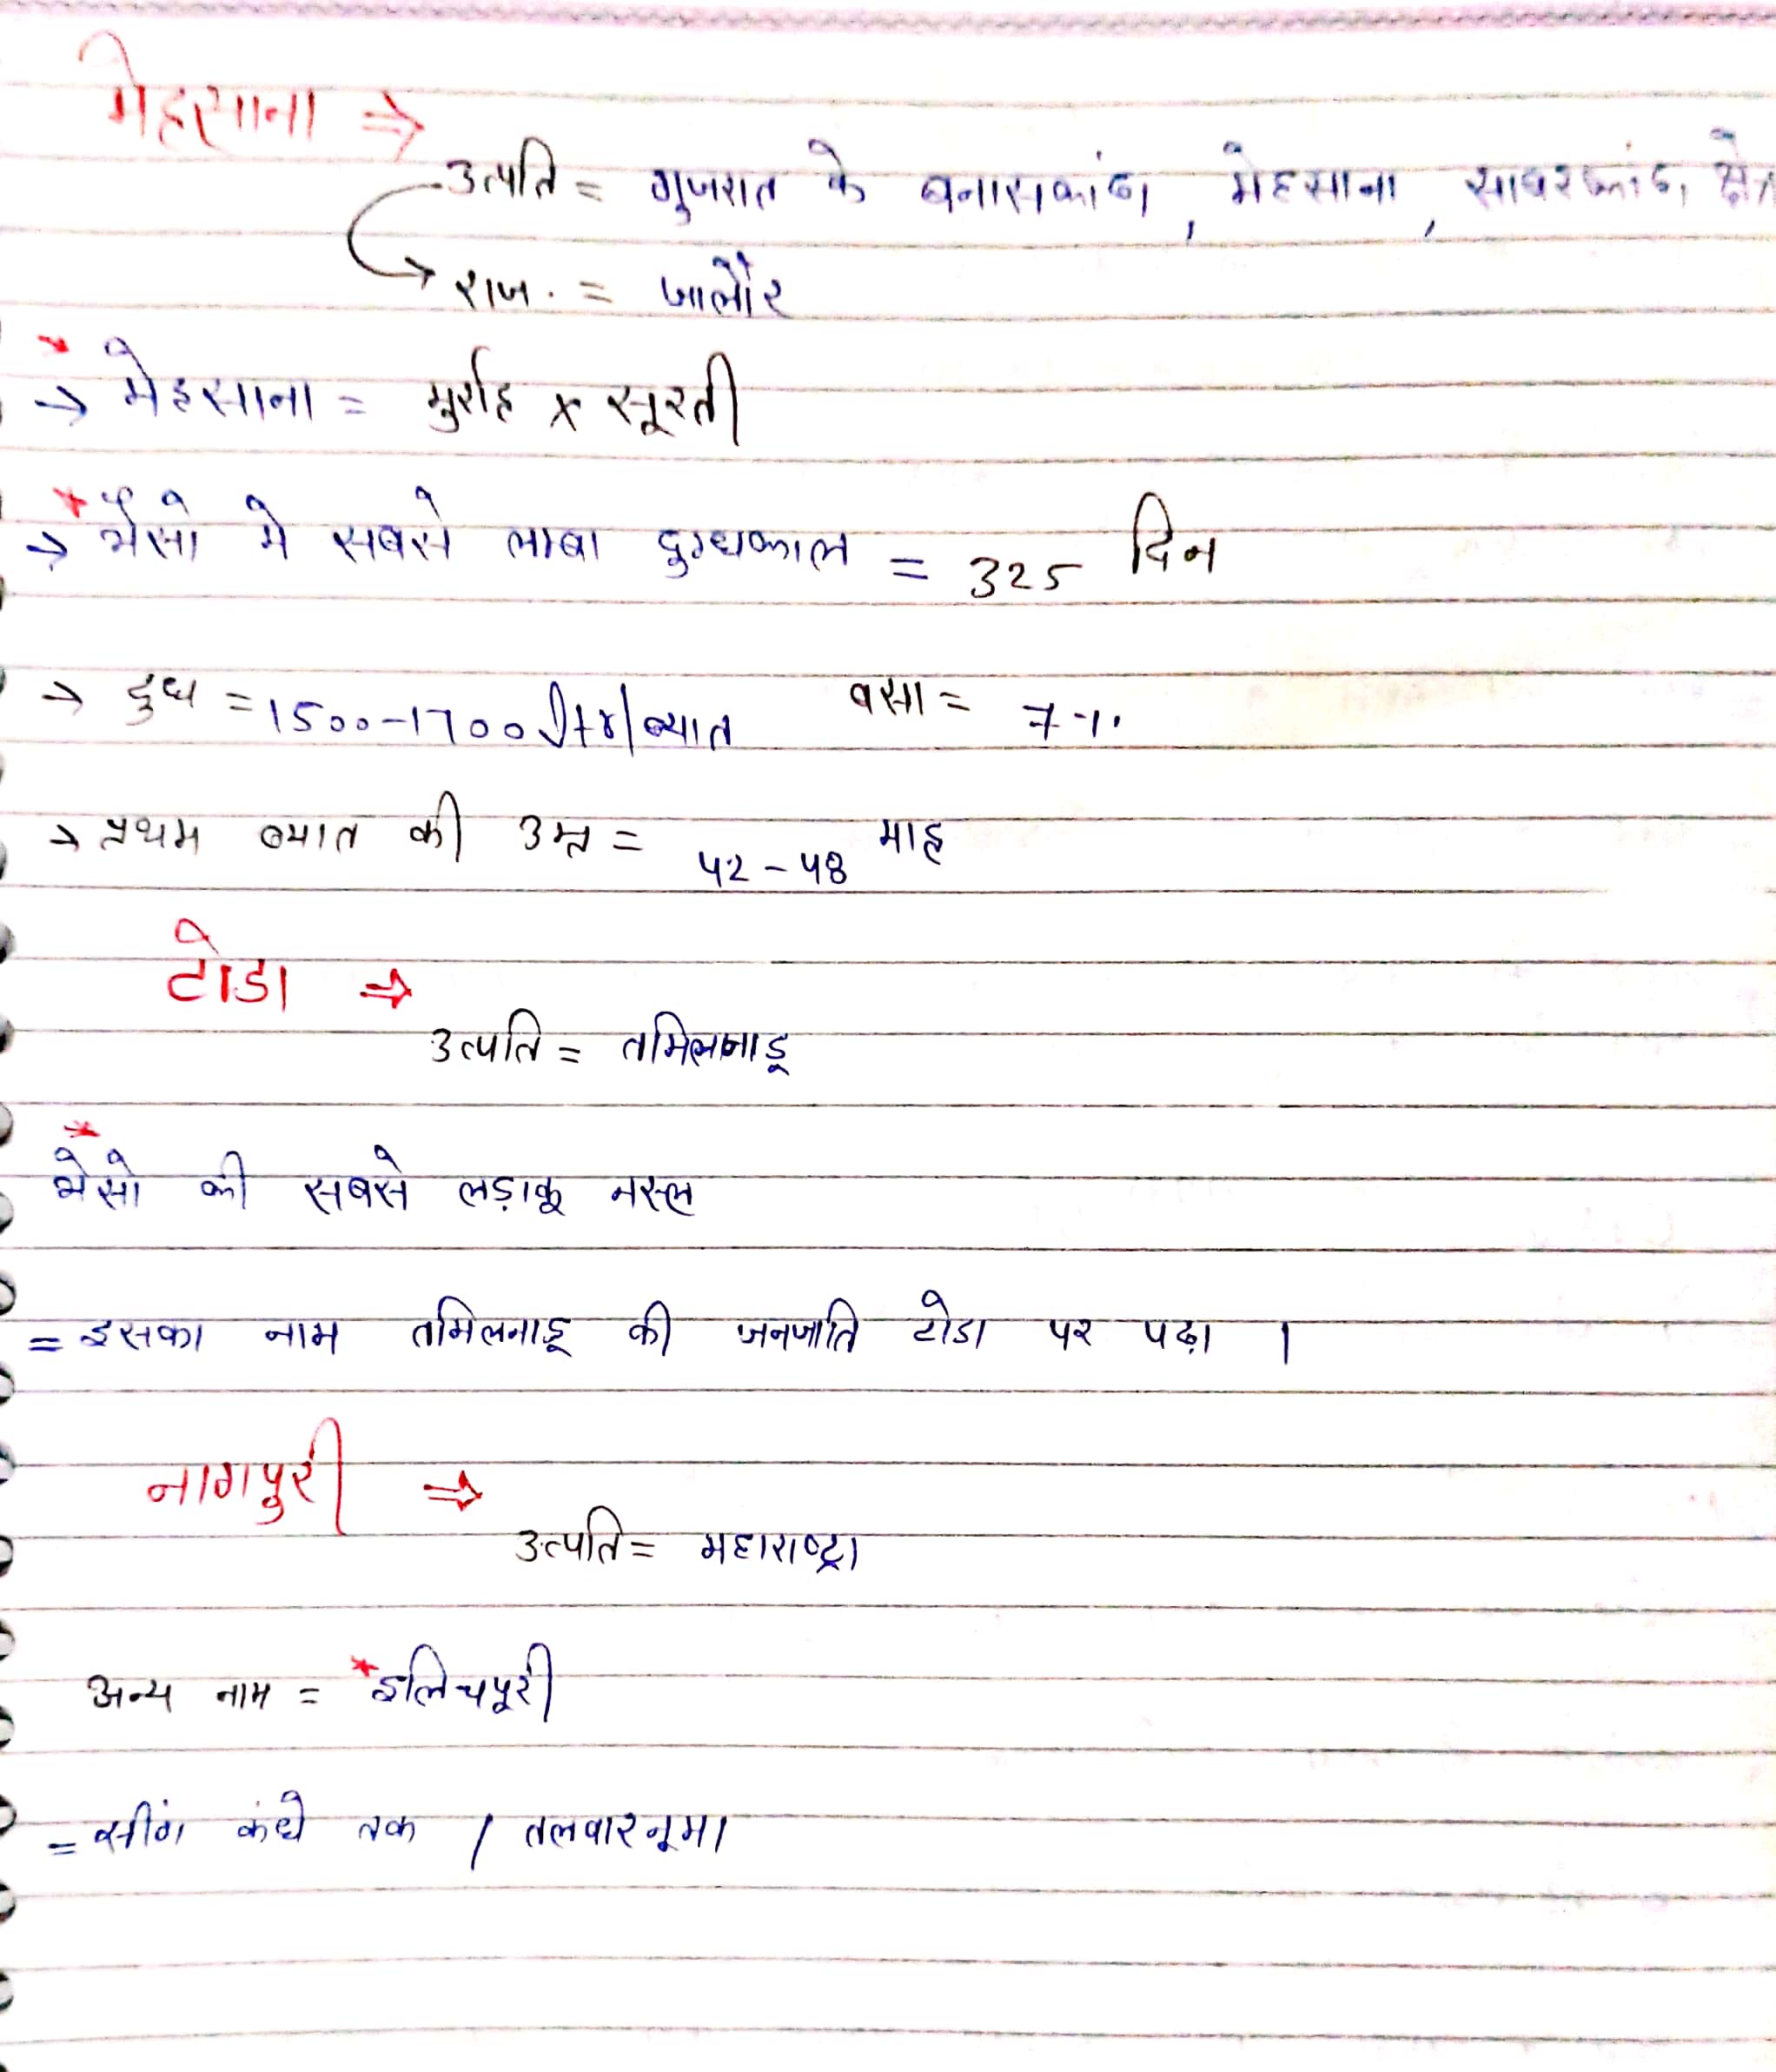 मेहसाना ⇒
उत्पति = गुजरात के बनासकांठा, मेहसाना, साबरकांठा क्षेत्र
→ राज. = जालौर
* → मेहसाना = मुर्राह x सूरती
* → भैंसो मे सबसे लम्बा दुग्धकाल = 325 दिन
→ दुध = 1500-1700 ltr/ब्यात वसा = 7%
→ प्रथम ब्यात की उम्र = 42-48 माह
टोडा ⇒
उत्पति = तमिलनाडू
* भेसो की सबसे लड़ाकू नस्ल
= इसका नाम तमिलनाडू की जनजाति टोडा पर पढ़ा ।
नागपुरी ⇒
उत्पति = महाराष्ट्रा
अन्य नाम = * इलिचपूरी
= सींग कंधे तक / तलवारनूमा